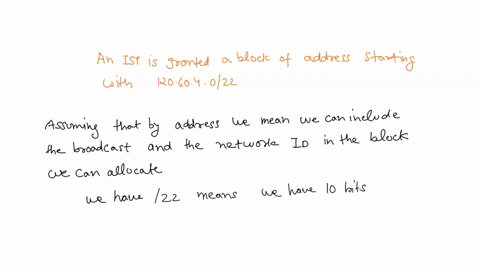 An ISP is granted a block of address starting
with 120.60.4.0/22
Assuming that by address we mean we can include
the broadcast and the network ID in the block
we can allocate
we have /22 means we have 10 bits